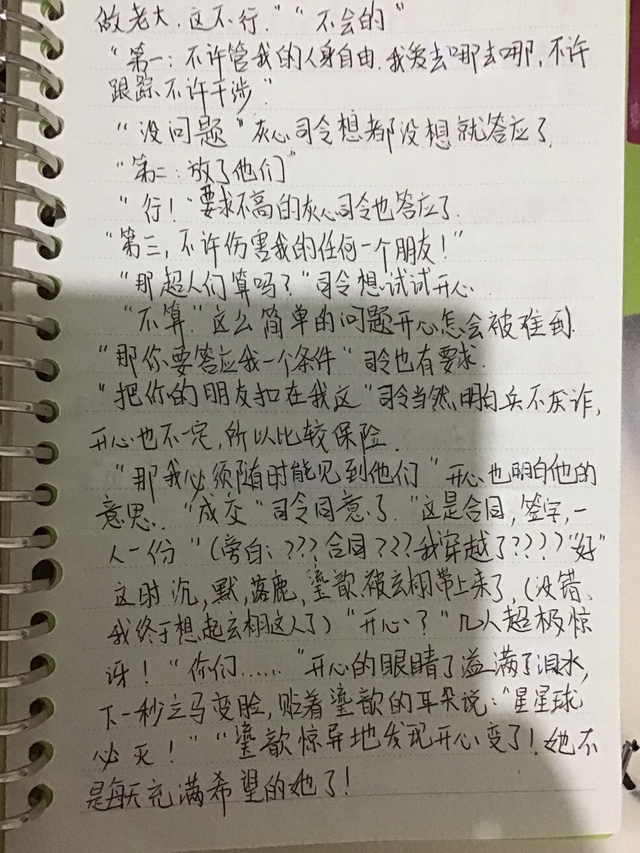 做老大.这不行." "不会的"
"第一:不许管我的人身自由.我爱去哪去哪,不许
跟踪不许干涉"
"没问题"灰心司令想都没想就答应了.
"第二:放了他们"
"行!"要求不高的灰心司令也答应了.
"第三,不许伤害我的任何一个朋友!"
"那超人们算吗?"司令想试试开心.
"不算"这么简单的问题开心怎会被难到.
"那你要答应我一个条件"司令也有要求.
"把你的朋友扣在我这"司令当然明白兵不厌诈,
开心也不一定,所以比较保险.
"那我必须随时能见到他们"开心也明白他的
意思. "成交"司令同意了."这是合同,签字,一
人一份"(旁白:???合同???我穿越了????)"好"
这时沉,默,落鹿,鎏歆被玄栩带上来了,(没错、
我终于想起玄栩这人了)"开心?"几人超极惊
讶!"你们......"开心的眼睛了溢满了泪水,
下一秒立马变脸,贴着鎏歆的耳朵说:"星星球
必灭!""鎏歆惊异地发现开心变了!她不
是每天充满希望的她了!